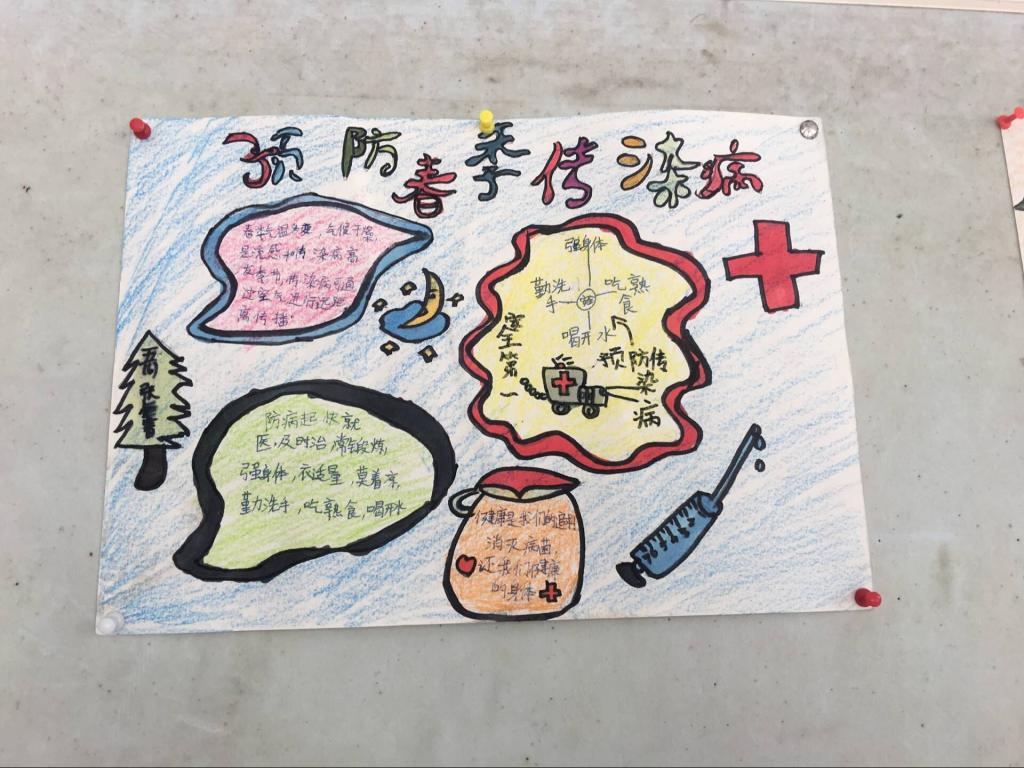 预防春季传染病
春季气温多变,气候干燥,
是流感和传染病高
发季节传染病可通
过空气进行远距
离传播.
强身体
勤洗
手
吃熟
食
喝开水
安全第一
预防传
染病
防病起 快就
医,及时治,常锻炼,
强身体,衣适量,莫着凉,
勤洗手,吃熟食,喝开水
健康是我们的
消灭病菌
还我们健康
的身体